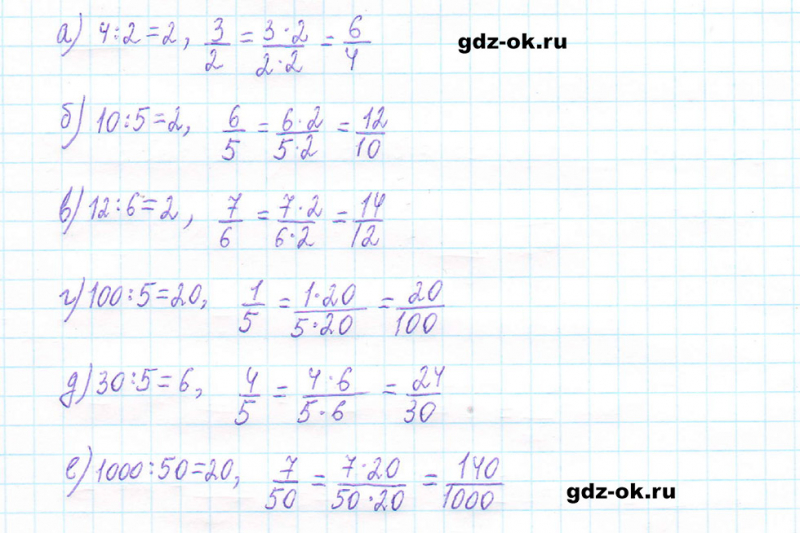 а) 4:2=2, 3/2 = 3·2/2·2 = 6/4 gdz-ok.ru
б) 10:5=2, 6/5 = 6·2/5·2 = 12/10
в) 12:6=2, 7/6 = 7·2/6·2 = 14/12
г) 100:5=20, 1/5 = 1·20/5·20 = 20/100
д) 30:5=6, 4/5 = 4·6/5·6 = 24/30
е) 1000:50=20, 7/50 = 7·20/50·20 = 140/1000
gdz-ok.ru